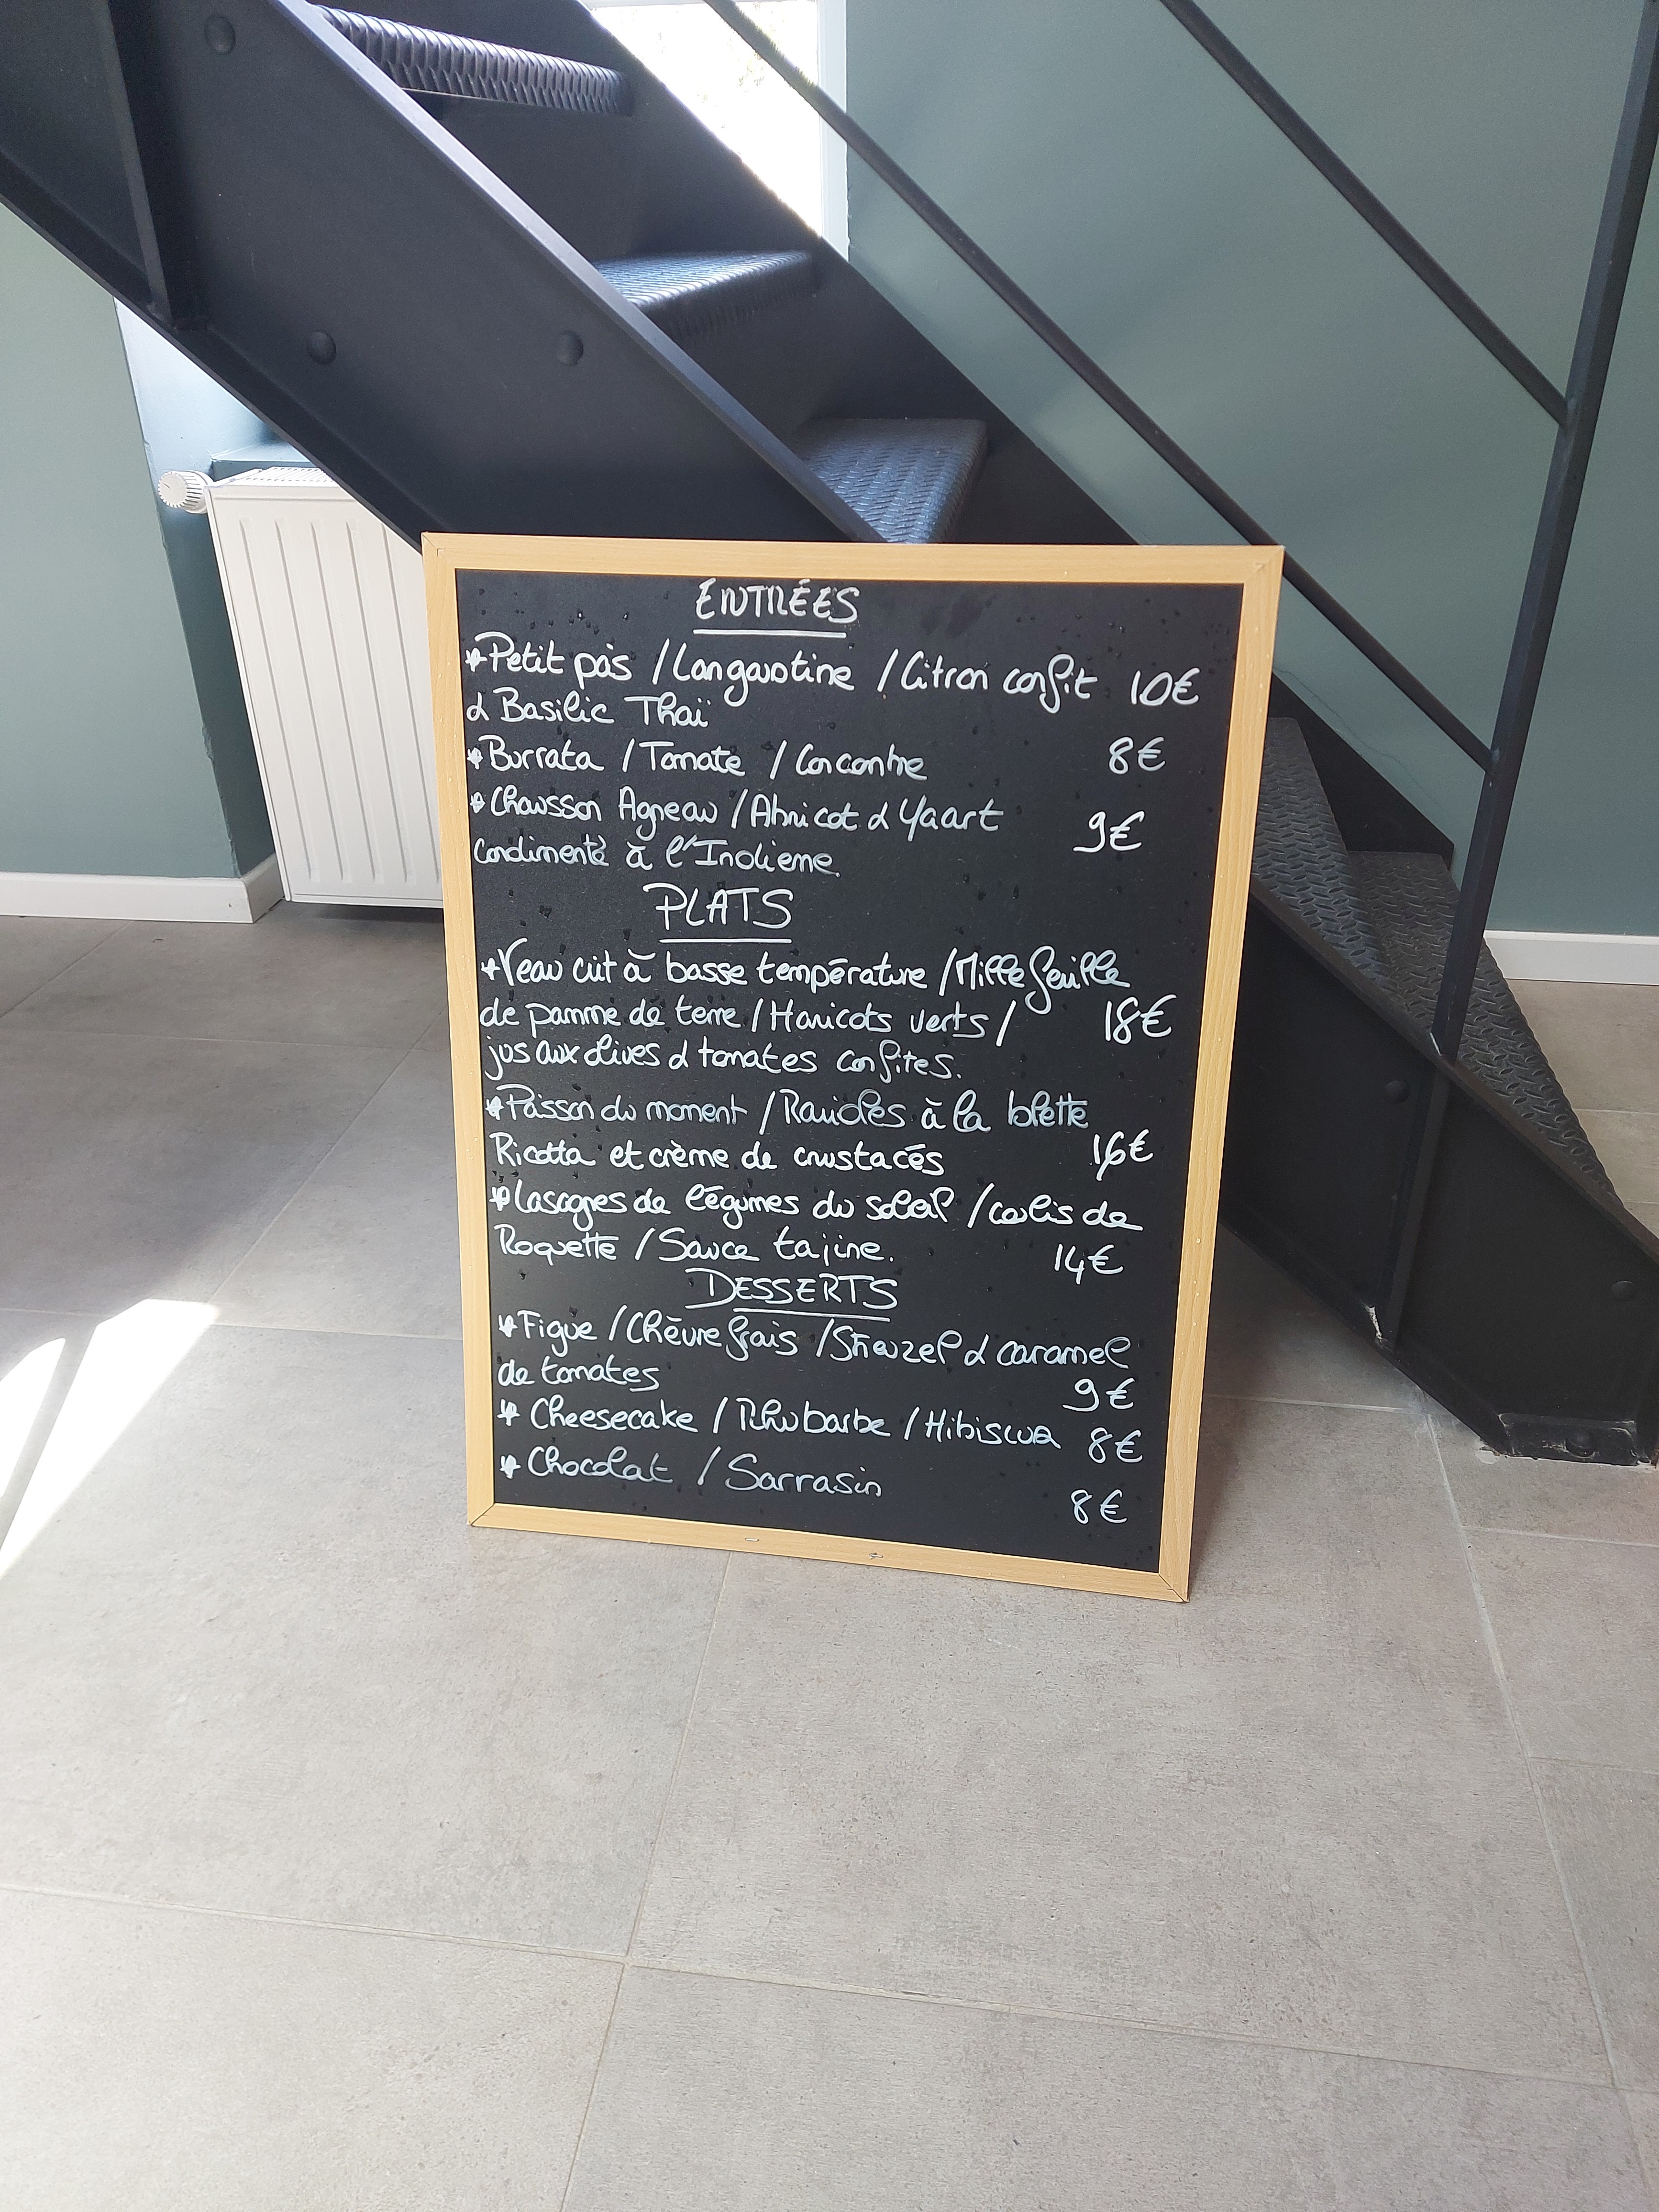 ENTRÉES
*Petit pois / Langoustine / Citron confit 10€
& Basilic Thaï
*Burrata / Tomate / Concombre 8€
*Chausson Agneau / Abricot & Yaourt
condimenté à l'Indienne. 9€
PLATS
*Veau cuit à basse température / Mille feuille
de pomme de terre / Haricots verts / 18€
jus aux olives & tomates confites.
*Poisson du moment / Ravioles à la blette
Ricotta et crème de crustacés 16€
*Lasagnes de légumes du soleil / coulis de
Roquette / Sauce tajine. 14€
DESSERTS
*Figue / Chèvre frais / Streuzel & caramel
de tomates 9€
* Cheesecake / Rhubarbe / Hibiscus 8€
* Chocolat / Sarrasin 8€